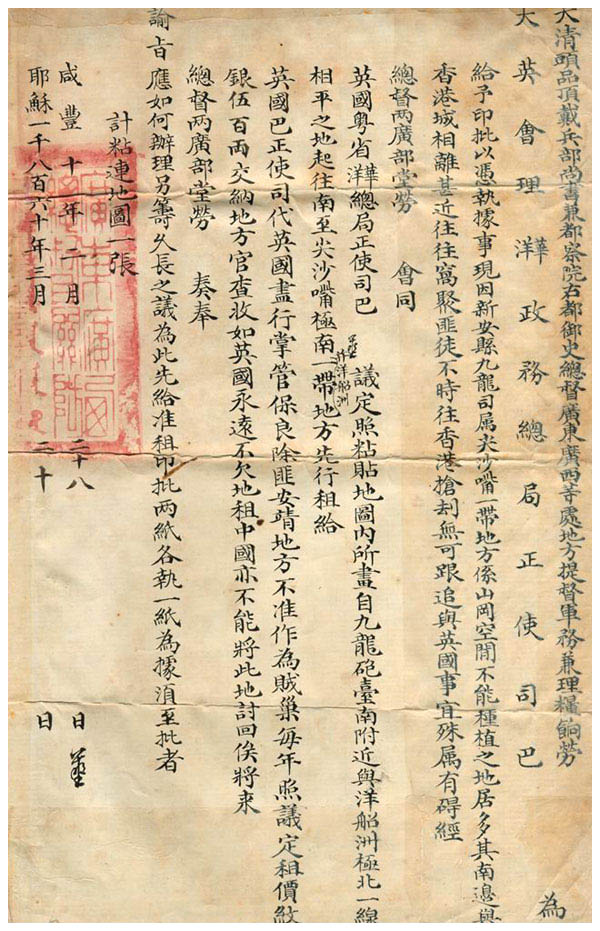 大清頭品頂戴兵部尚書兼都察院右都御史總督廣東廣西等處地方提督軍務兼理糧餉勞
大英會理華洋政務總局正使司巴
為
給予印批以憑執據事現因新安縣九龍司属尖沙嘴一帶地方係山岡空閒不能種植之地居多其南邊與
香港城相離甚近往往窩聚匪徒不時往香港搶刦無可跟追與英國事宜殊属有碍經
總督两廣部堂勞 會同
英國粤省華洋總局正使司巴 議定照粘貼地圖內所畫自九龍砲臺南附近與洋船洲極北一線
相平之地起往南至尖沙嘴極南一帶地方先行租給
并洋船洲
英國巴正使司代英國盡行掌管保良除匪安靖地方不准作為賊巢每年照議定租價紋
銀伍百両交納地方官查收如英國永遠不欠地租中國亦不能將此地討回俟將來
總督两廣部堂勞 奏奉
諭旨應如何辦理另籌久長之議為此先給准租印批两紙各執一紙為據湏至批者
計粘連地圖一張
咸豐十年二月二十八日
耶穌一千八百六十年三月二十日